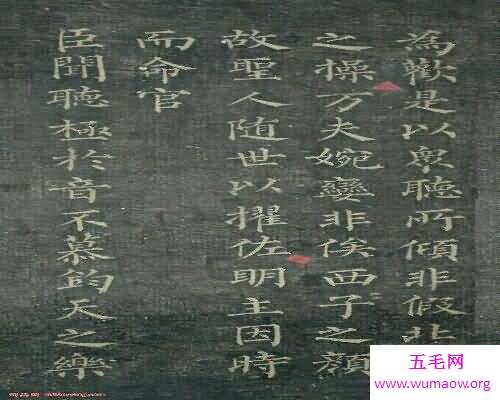 為歡是以眾聽所傾非假北
之操万夫婉孌非俟西子之顏
故聖人随世以擢佐明主因時
而命官
臣聞聽極於音不慕鈞天之樂
五毛网
www.wumaow.org